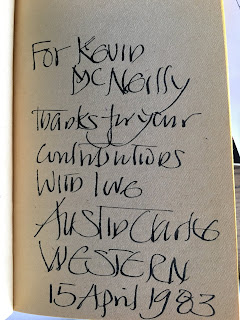 For Kevin
McNeilly
Thanks for your
contributions
With love
Austin Clarke
WESTERN
15 April 1983